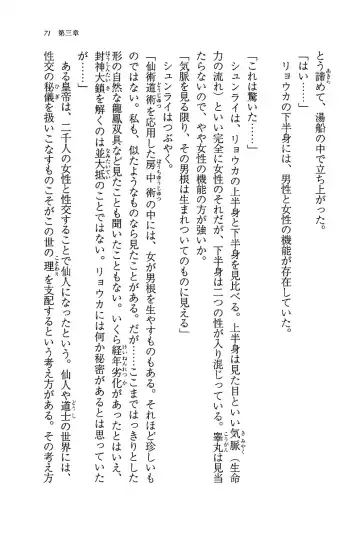 71　第三章
とう諦めて、湯船の中で立ち上がった。
「はい……」
リョウカの下半身には、男性と女性の機能が存在していた。
「これは驚いた……」
シュンライは、リョウカの上半身と下半身を見比べる。上半身は見た目といい気脈（生命
力の流れ）といい完全に女性のそれだが、下半身は二つの性が入り混じっている。睾丸は見当
たらないので、やや女性の機能の方が強いか。
「気脈を見る限り、その男根は生まれついてのものに見える」
シュンライはつぶやく。
「仙術道術を応用した房中術の中には、女が男根を生やすものもある。それほど珍しいも
のではない。私も、似たようなものなら見たことがある。だが……ここまではっきりとした
形の自然な龍鳳双具など見たことも聞いたこともない。いくら経年劣化があったとはいえ、
封神大鎖を解くのは並大抵のことではない。リョウカには何か秘密があるとは思っていた
が……」
ある皇帝は、二千人の女性と性交することで仙人になったという。仙人や道士の世界には、
性交の秘儀を扱いこなすものこそがこの世の理を支配するという考え方がある。その考え方